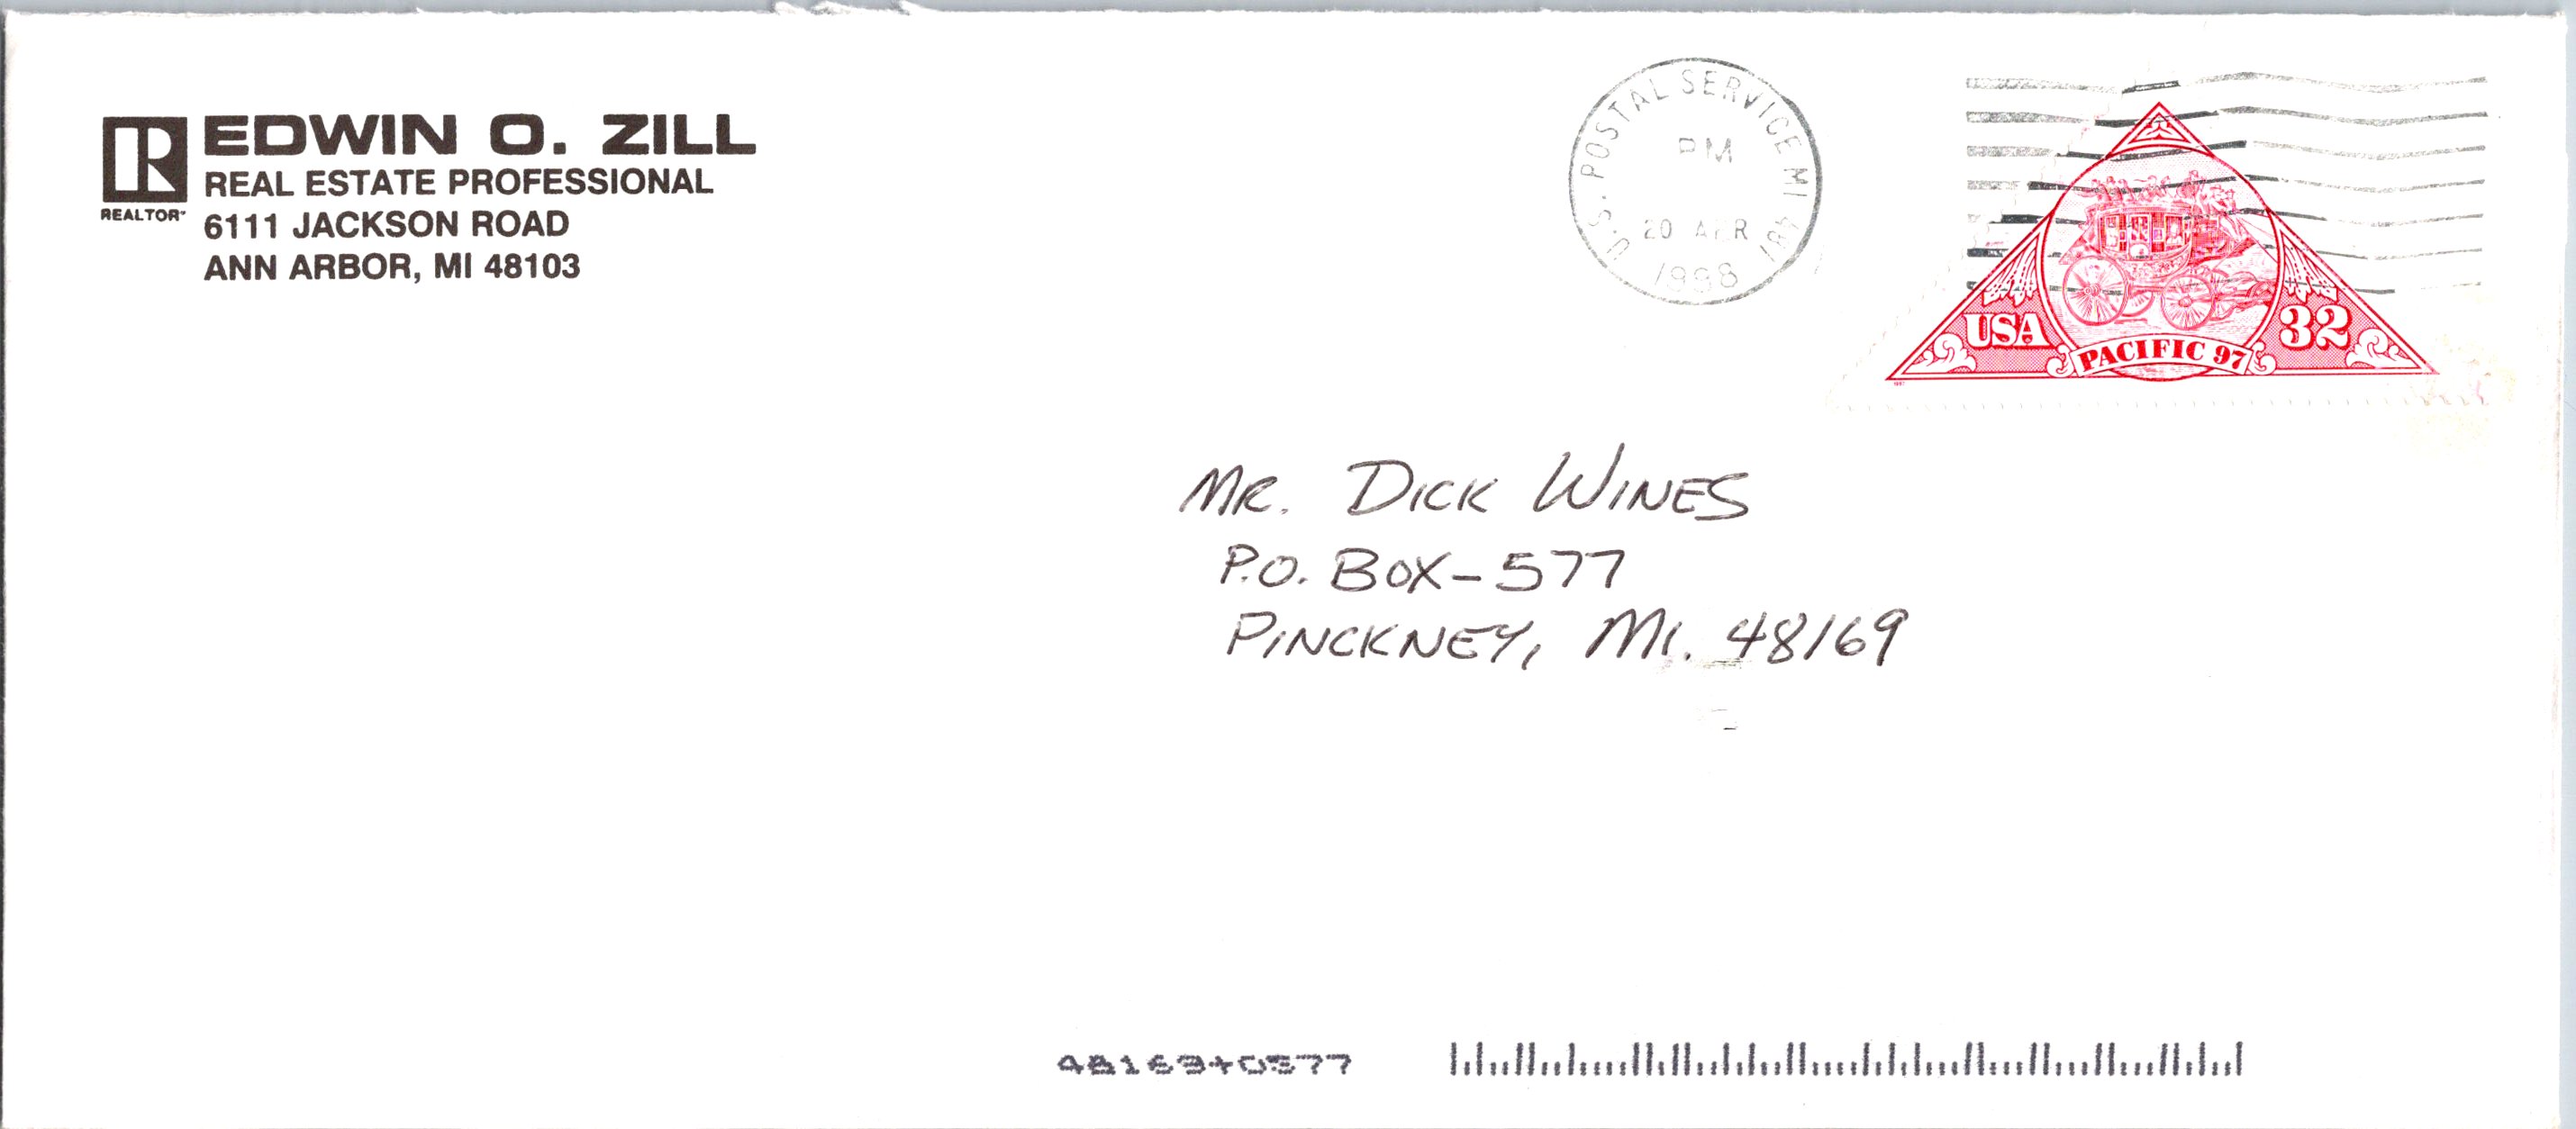 EDWIN O. ZILL
REAL ESTATE PROFESSIONAL
REALTOR
6111 JACKSON ROAD
ANN ARBOR, MI 48103
U.S. POSTAL SERVICE MI 481
PM
20 APR
1998
USA
32
PACIFIC 97
1997
MR. DICK WINES
P.O. BOX-577
PINCKNEY, MI. 48169
48169+0577